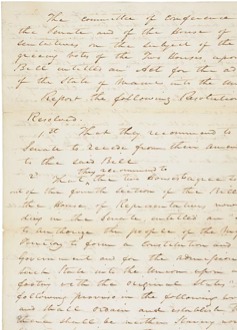 The committee of conference
the Senate and of the House of
sentatives on the subject of the
greeing votes of the Two Houses upon
Bill entitled an Act for the ad
of the State of Maine into the Un
Report the following Resolution
Resolved.
1st That they recommend to
Senate to recede from their amend
to the said Bill
2 That the two Houses agree
they recommend to
out of the fourth section of the Bill
the House of Representatives now
ding in the Senate, entitled an
to authorize the people of the
to form a Constitution and
Government and for the admission
such State into the Union upon
footing with the original States
following proviso in the following
and shall ordain and establish
there shall be neither slavery nor